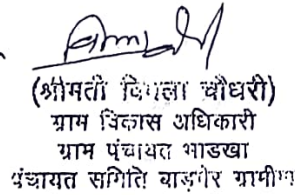 (श्रीमती विमला चौधरी)
ग्राम विकास अधिकारी
ग्राम पंचायत भाडखा
पंचायत समिति बाड़मेर ग्रामीण